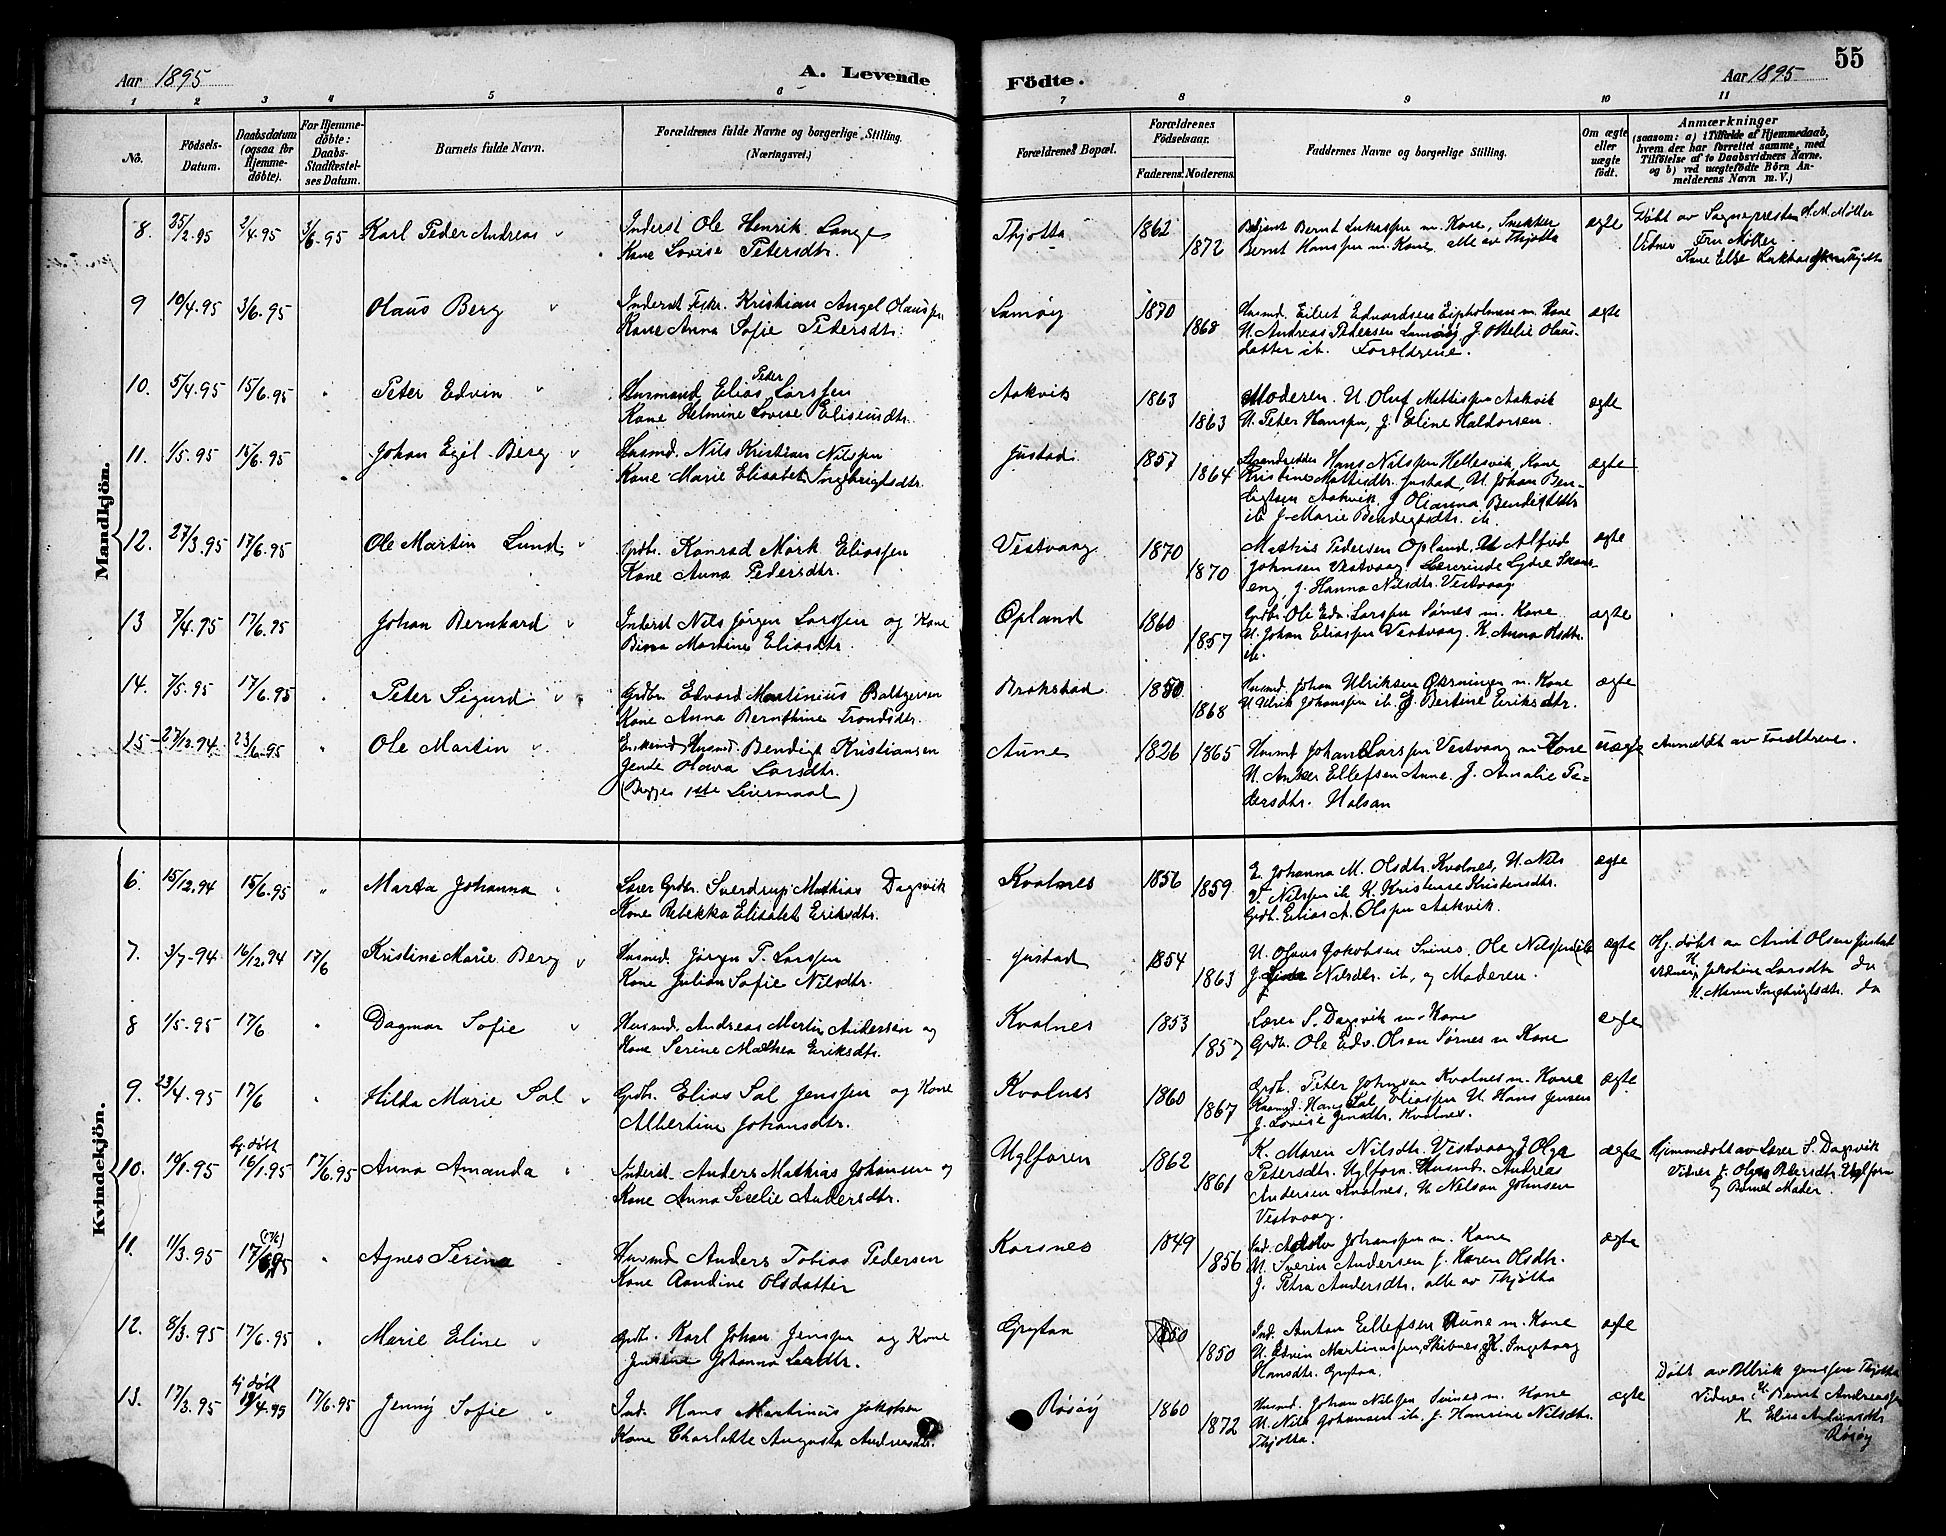 55
Aar 1895 A. Levende Födte. Aar 1895
1 2 3 4 5 6 7 8 9 10 11
No.
Födsels-Datum.
Daabsdatum (ogsaa for Hjemme-döbte).
For Hjemme-döbte: Daabs-Stadfæstel-ses Datum.
Barnets fulde Navn.
Forældrenes fulde Navne og borgerlige Stilling. (Næringsvei.)
Forældrenes Bopæl.
Forældrenes Födselsaar.
Faderens. Moderens.
Faddernes Navne og borgerlige Stilling.
Om ægte eller uægte födt.
Anmærkninger
(saasom: a) i Tilfælde af Hjemmedaab,
hvem der har forrettet samme, med
Tilföielse af to Daabsvidners Navne,
og b) ved uægtefödte Börn An-
melderens Navn m. V.)
Mandkjön.
8. 25/2.95 2/4.95 3/6.95 Karl Peder Andreas Inderst Ole Henrik Lange Thjøtta 1862 Bernt Lukassen m. Kone, Snekker ægte Døbt av Sognepresten H. M. Møller
Kone Lovise Petersdtr. 1872 Bernt Hanssen m. Kone alle av Thjøtta Vidner Fru Møller
Kone Else
9 10/4.95 3/6.95 Olaus Berg Inderst Fisker Kristian Angel Olaussen Lamøy 1870 Husmd. Eilert Edvardsen m. Kone ægte
Kone Anna Sofie Pedersdtr. 1868 U. Andreas Pedersen Lamøy, J. Otelie Olaus-
datter ib. Foreldrene.
10. 5/4.95 15/6.95 Peter Edvin Husmand Elias Peder Larssen Aakvik 1863 Moderen. U. Oluf Mattissen Aakvik ægte
Kone Helmine Lovise Eliseusdtr. 1863 U. Peter Hanssen, J. Eline Haldorsen.
11. 1/5.95 15/6.95 Johan Egil Berg Husmd. Nils Kristian Nilssen Justad 1857 Hans Nilssen Hellesvik, Kone ægte
Kone Marie Elisabet Ingebrigtsdtr. 1864 Kristine Mattisdtr. Justad, U. Johan Ben-
digtsen Aakvik, J. Olianna Bendigtsdtr.
ib. J. Marie Bendigtsdtr. ib.
12. 27/3.95 17/6.95 Ole Martin Lund Grdbr. Konrad Mørk Eliassen Vestvaag 1870 Mathis Pedersen Opland, U. Alfred ægte
Kone Anna Pedersdtr. 1870 Johnsen Vestvaag, Lærerinde Lydie
eng, J. Hanna Nilsdtr. Vestvaag
13 7/4.95 17/6.95 Johan Bernhard Inderst Nils Jørgen Larssen og Kone Opland 1860 Grdbr. Ole Edv. Larssen Sørnes m. Kone ægte
Martine Eliasdtr. 1857 U. Johan Eliassen Vestvaag. K. Anna Olsdtr.
ib.
14. 7/5.95 17/6.95 Peter Sigurd Grdbr. Edvard Martinius Baltzersen Brokstad 1850 Husmd. Johan Ulriksen m. Kone ægte
Kone Anna Bernthine Trondsdtr. 1868 U. Ulrik Johanssen ib. J. Bertine Eriksdtr.
15 27/12.94 23/6.95 Ole Martin Enkemd. Husmd. Bendigt Kristiansen Aune 1826 1865 Husmd. Johan Larssen Vestvaag m. Kone uægte Anmeldt av Foreldrene.
Jente Olava Larsdtr. U. Anker Ellefsen Aune. J. Amalie Pe-
(Begges 1ste Leiermaal) dersdtr. Halsan
Kvindekjön.
6. 15/12.94 15/6.95 Marta Johanna Lærer Grdbr. Sverdrup Mathias Dagsvik Kvalnes 1856 E. Johanna M. Olsdtr. Kvalnes, U. Nils ægte
Kone Rebekka Elisabet Eriksdtr. 1859 V. Nilssen ib. K. Kristense Kristensdtr.
Grdb. Elias A. Olssen Aakvik.
7. 3/7.94 16/12.94 17/6 Kristine Marie Berg Husmd. Jørgen P. Larssen Justad 1854 U. Olaus Jakobsen Svines, Ole Nilssen ib. ægte Hj. døbt av Arnt Olsen Justad
Kone Julian Sofie Nilsdtr. 1863 J. Nilsdtr. ib. og Moderen. Vidner, Jakobine Larsdtr. do
K. Maren Ingebrigtsdtr. do
8 1/5.95 17/6 Dagmar Sofie Husmd. Andreas Martin Andersen og Kvalnes 1853 Lærer S. Dagsvik m. Kone ægte
Kone Serine Mathea Eriksdtr. 1857 Grdb. Ole Edv. Olsen Sørnes m Kone
9. 23/4.95 17/6 Hilda Marie Sal Grdbr. Elias Sal Jenssen og Kone Kvalnes 1860 Grdb. Peter Johnsen Kvalnes m. Kone ægte
Albertine Johansdtr. 1867 Hans Sal Eliassen U. Hans Jensen
J. Lovise Jensdtr. Kvalnes.
10. 10/1.95 hj. døbt 16/1.95 17/6.95 Anna Amanda Inderst Anders Mathias Johansen og Uglforen 1862 K. Maren Nilsdtr. Vestvaag, J. Olga ægte Hjemmedøbt av Lærer S. Dagsvik
Kone Anna Secelie Andersdtr. 1861 Petersdtr. Uglforn. Husmd. Andreas Vidner J. Olga Petersdtr. Uglforn
Andersen Kvalnes, U. Nelson Johnsen og Barnets Moder.
Vestvaag.
11. 11/3.95 17/6 95 Agnes Serine Husmd. Anders Tobias Pedersen Korsnes 1849 Ind. Johanssen m. Kone ægte
Kone Randine Olsdatter 1856 U. Sverin Andersen J. Karen Olsdtr.
J. Petra Andersdtr. alle av Thjøtta
12. 8/3.95 17/6.95 Marie Eline Grdb. Karl Johan Jenssen og Kone Grytan 1850 Ind. Anton Ellefsen Aune m. Kone ægte
Johanna 1850 U. Edvin Martinussen, Skibnes, K. Ingeborg
Hansdtr. Grytan.
13. 17/3.95 hj døbt 4.95 17/6.95 Jenny Sofie Ind. Hans Martinus Jakobsen Røsøy 1860 Husmd. Johan Nilssen Svines m. Kone ægte Døbt av Ulrik Jenssen Thjøtta
Kone Charlotte Augusta Andreasdtr. 1872 U. Nils Johansen ib. J. Hansine Nilsdtr. Vidner: U. Bernt Andreassen
Thjøtta. K. Elise Andreasdtr.
Røsøy